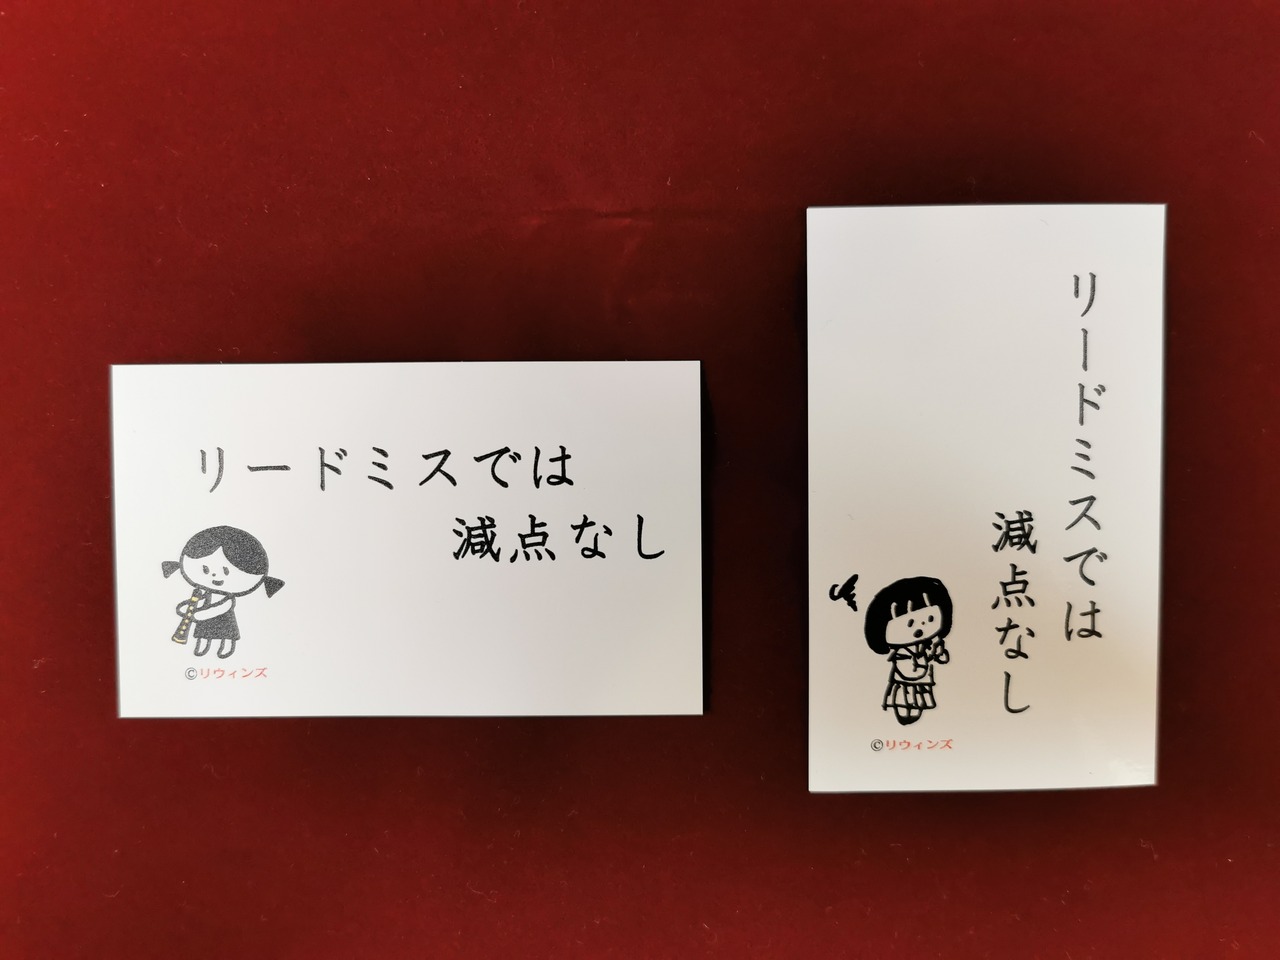 リードミスでは
減点なし
©リウィンズ
リードミスでは
減点なし
©リウィンズ